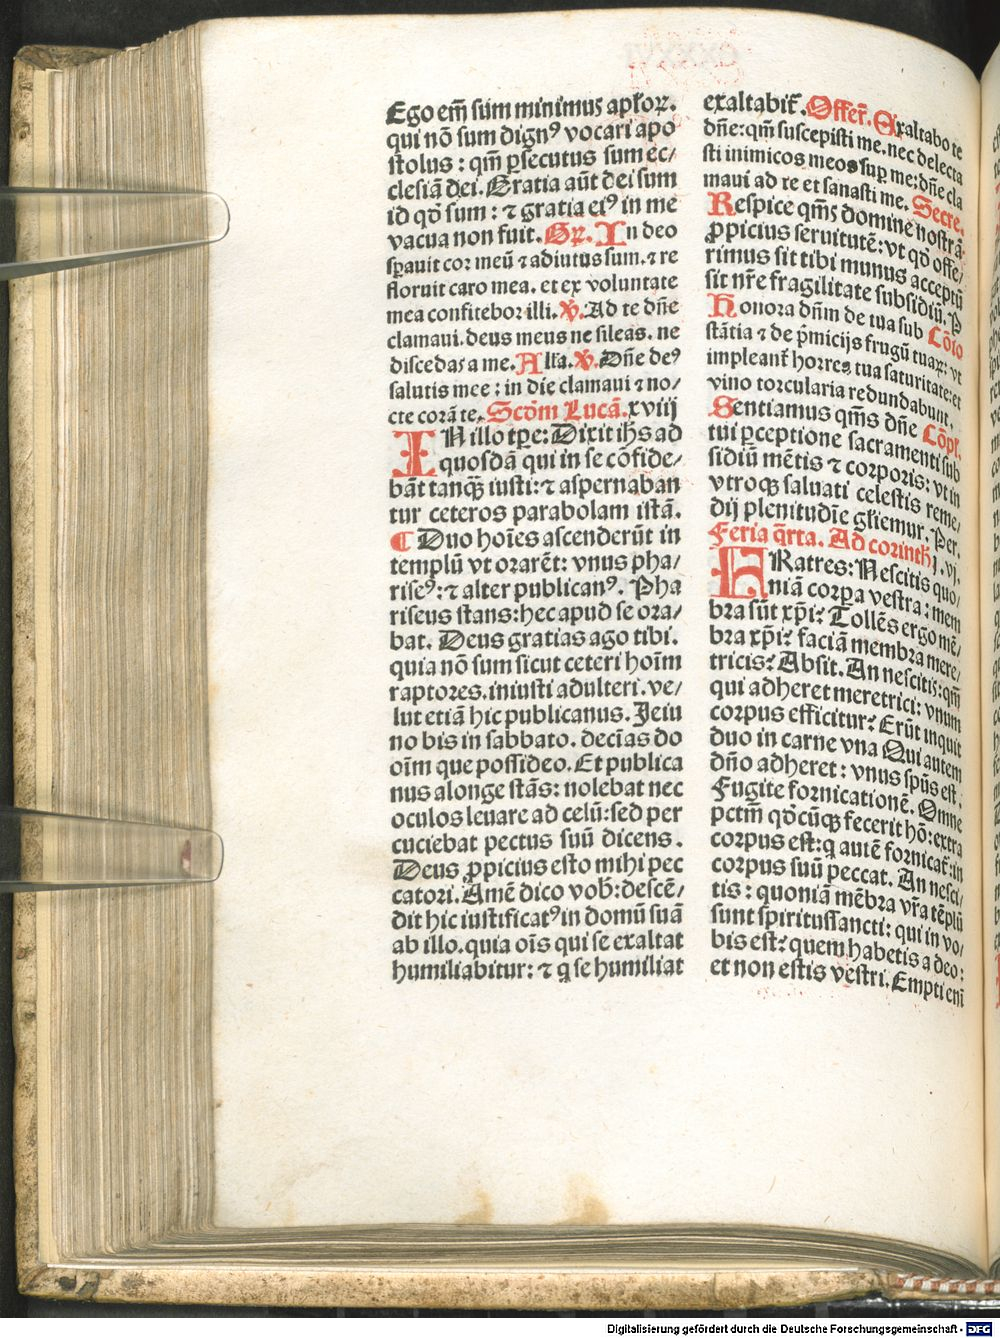 Ego em̄ sum minimus apl'oꝝ.
qui nō sum dignꝰ vocari apo
stolus: qm̄ ꝑsecutus sum ec/
clesiā dei. Gratia aūt dei sum
id qđ sum: ⁊ gratia eiꝰ in me
vacua non fuit. Gꝝ. In deo
sꝑauit cor meū ⁊ adiutus sum. ⁊ re
floruit caro mea. et ex voluntate
mea confitebor illi. ℣. Ad te dn̄e
clamaui. deus meus ne sileas. ne
discedas a me. Alla. ℣. Dn̄e deꝰ
salutis mee: in die clamaui ⁊ no/
cte corā te. Scd̄m Lucā. xviij
IN illo tꝑe: Dixit ih̄s ad
quosdā qui in se cōfide/
bāt tanqꝫ iusti: ⁊ aspernaban
tur ceteros parabolam istā.
¶ Duo hoīes ascenderūt in
templū vt orarēt: vnus pha/
riseꝰ: ⁊ alter publicanꝰ. Pha
riseus stans: hec apud se ora/
bat. Deus gratias ago tibi.
quia nō sum sicut ceteri hoīm
raptores. iniusti adulteri. ve/
lut etiā hic publicanus. Jeiu
no bis in sabbato. deciās do
oīm que possideo. Et publica
nus a longe stās: nolebat nec
oculos leuare ad celū: sed per
cuciebat pectus suū dicens.
Deus ꝓpicius esto mihi pec
catori. Amē dico vob̄: descē/
dit hic iustificatꝰ in domū suā
ab illo. quia oīs qui se exaltat
humiliabitur: ⁊ q se humiliat
exaltabit̄. Offer̄. Exaltabo te
dn̄e: qm̄ suscepisti me. nec delecta
sti inimicos meos suꝑ me: dn̄e cla
maui ad te et sanasti me. Secre.
Respice qm̄s domine nostrā
ꝓpicius seruitutē: vt qđ offe/
rimus sit tibi munus acceptū
sit nr̄e fragilitate subsidiū. P
Honora dn̄m de tua sub Cōīo
stātia ⁊ de p̄micijs frugū tuaꝝ: vt
impleant̄ horrea tua saturitate: et
vino torcularia redundabunt.
Sentiamus qm̄s dn̄e Cōpl.
tui ꝑceptione sacramenti sub
sidiū mētis ⁊ corporis: vt in
vtroqꝫ saluati celestis reme/
dij plenitudīe gl'iemur. Per.
Feria q̄rta. Ad corinth̄ j. vj.
FRatres: Nescitis quo/
niā corꝑa vestra: mem
bra sūt xp̄i? Tollēs ergo mē/
bra xp̄i? faciā membra mere/
tricis? Absit. An nescitis: qm̄
qui adheret meretrici: vnum
corpus efficitur? Erūt inquit
duo in carne vna Qui autem
dn̄o adheret: vnus spūs est.
Fugite fornicationē. Omne
pctm̄ qđcūqꝫ fecerit hō: extra
corpus est: q autē fornicat̄: in
corpus suū peccat. An nesci/
tis: quoniā mēbra vr̄a tēplū
sunt spiritussancti: qui in vo/
bis est? quem habetis a deo:
et non estis vestri. Empti enī
Digitalisierung gefördert durch die Deutsche Forschungsgemeinschaft - DFG